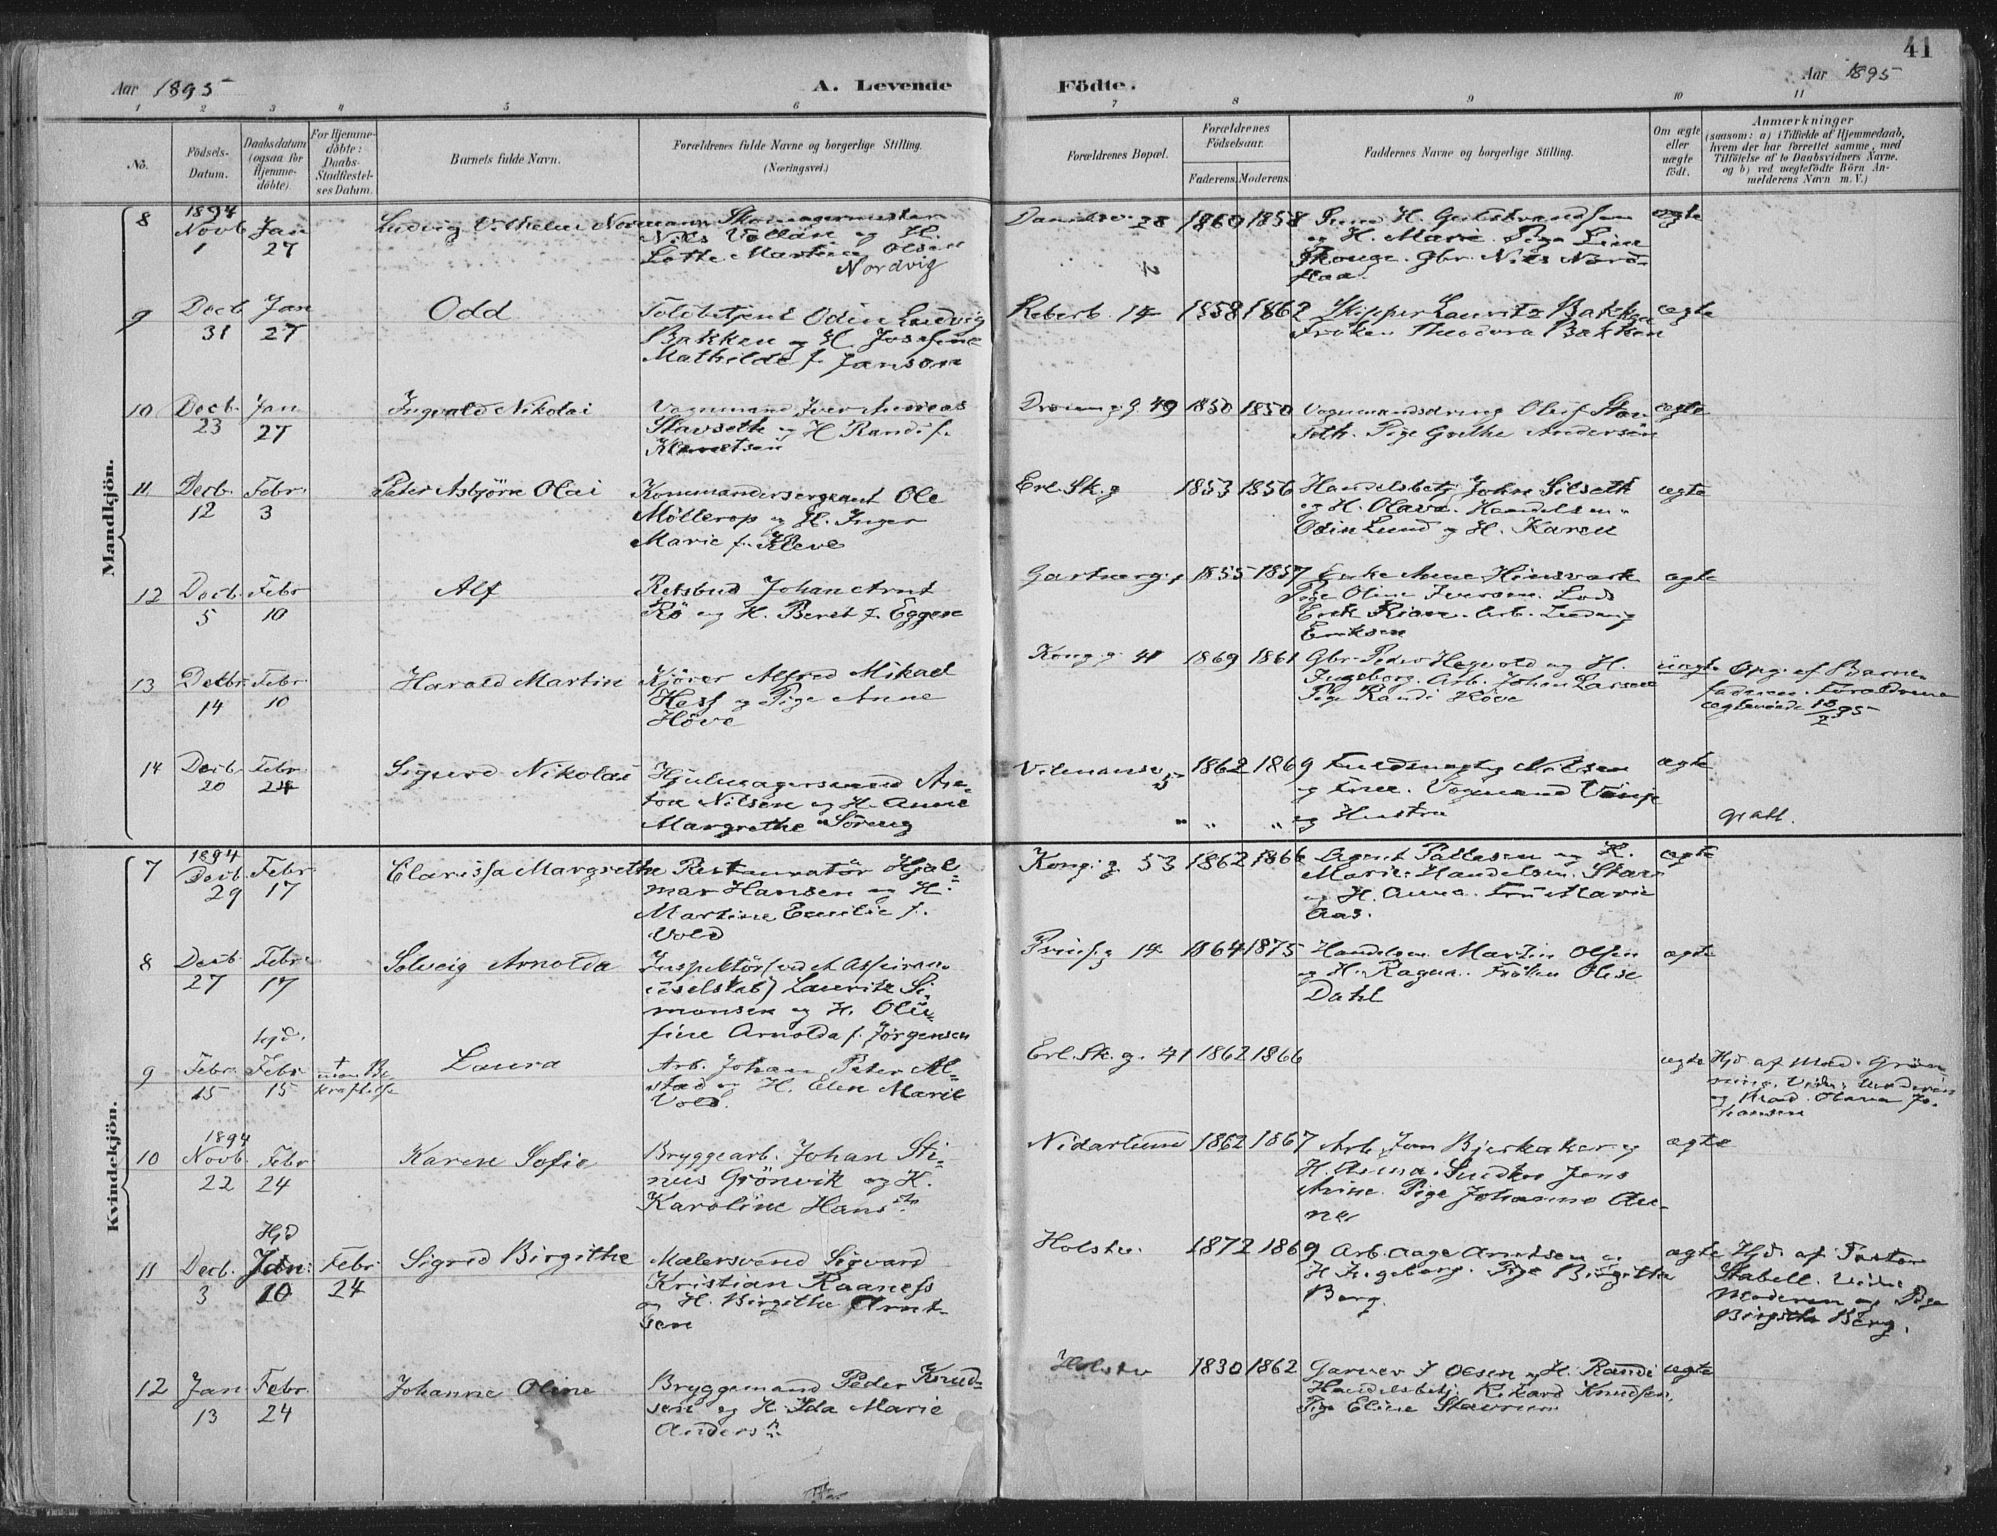 41
Aar 1895 A. Levende Födte. Aar 1895
1 2 3 4 5 6 7 8 9 10 11
No.
Födsels-
Datum.
Daabsdatum
(ogsaa for
Hjemme-
döbte).
For Hjemme-
döbte:
Daabs-
Stadfæstel-
ses Datum.
Barnets fulde Navn.
Forældrenes fulde Navne og borgerlige Stilling.
(Næringsvei.)
Forældrenes Bopæl.
Forældrenes
Födselsaar.
Faderens. Moderens.
Faddernes Navne og borgerlige Stilling.
Om ægte
eller
uægte
födt.
Anmærkninger
(saasom: a) i Tilfælde af Hjemmedaab,
hvem der har forrettet samme, med
Tilföielse af to Daabsvidners Navne.
og b) ved uægtefödte Börn An-
melderens Navn m. V.)
Mandkjön.
8
1894
Novb
1
Jan
27
Ludvig Vilhelm Normann
Skomagermester
Nils Vollan og H.
Lotte Martine Olsen
Nordvig
28
1860 1858
og H. Marie. Pige Line
Skouge. Gbr. Nils
ægte
9
Decb
31
Jan
27
Odd
Toldbetjent Odin Ludvig
Bakken og H. Josefine
Mathilde f. Janson
Reberb. 14
1858 1862
Skipper Lauritz Bakken
Fröken Theodora Bakken
ægte
10
Decb.
23
Jan
27
Ingvald Nikolai
Vognmand Iver Andreas
Stavseth og H. Randi f.
Dronn.g. 49
1850 1850
Vognmandsdreng Oluf Stav-
seth. Pige Grethe Andersön
ægte
11
Decb.
12
Febr.
3
Peter Asbjörn Olai
Kommandersergeant Ole
Möllerop og H. Inger
Marie f. Kleve
Erl. Sk. g
1853 1856
Handelsbetj John Silseth
og H. Olava. Handelsm.
Odin Lund og H. Karen
ægte
12
Decb.
5
Febr
10
Alf
Retsbud Johan Arnt
Rö og H. Beret f. Eggen
Gartnerg.
1855 1857
Enke Anne
Pige Oline Iversen. Lods
Erik Rian. Arb. Ludvig
Eriksen
ægte
13
Decbr.
14
Febr.
10
Harald Martin
Kjörer Alfred Mikael
Hasf og Pige Anne
Höve
Kong. g. 41
1869 1861
Gbr. Peder Hegvold og H.
Ingeborg. Arb. Johan Larsen
Pige Randi Höve
uægte
Opg. af Barne-
faderen. Forældrene
ægteviede 10/2 95
14
Decb.
20
Febr.
24
Sigurd Nikolai
Hjulmagersvend An-
ton Nilsen og H. Anne
Margrethe Söreng
5
1862 1869
Fuldmægtig Nilsen
og Frue. Vognmand Vinje
og Hustru
ægte
gratt.
Kvindekjön.
7
1894
Decb.
29
Febr
17
Clarissa Margrethe
Restauratör Hjal-
mar Hansen og H.
Martine Emilie f.
Vold
Kong. g. 53
1862 1866
Agent Pallesen og H.
Marie. Handelsm.
og H. Anna. Fru Marie
Aas.
ægte
8
Decb
27
Febr.
17
Solveig Arnolda
Inspektör (ved et Assuran-
ceselskab) Lauritz Si-
monsen og H. Olu-
fine Arnolda f. Jörgensen
Prinsg 14
1864 1875
Handelsm. Martin Olsen
og H. Ragna. Fröken Olise
Dahl
ægte
9
Febr.
15
Hjd.
Febr
15
†
uden Be-
kræftelse
Laura
Arb. Johan Peter Al-
stad og H. Elen Marie
Vold.
Erl. Sk. g. 41
1862 1866
ægte
Hjd. af Mad. Grön-
ning. Vidn: Moderen
og Mad. Olava Jo-
hansen
10
1894
Novb.
22
Febr
24
Karen Sofie
Bryggearb. Johan Sti-
nus Grönvik og H.
Karoline Hansen
Nidarlund
1862 1867
Arb. Jon Bjerkaker og
H. Anna. Snedker Jens
Arine. Pige Johanna Au-
ner
ægte
11
Decb.
3
Hjd
Jan:
10
Febr
24
Sigrid Birgithe
Malersvend Sigvard
Kristian Raaness
og H. Birgithe Arnt-
sen
Holstv.
1872 1869
Arb. Aage Arntsen og
H Ingeborg. Pige Birgitha
Berg.
ægte
Hjd. af Pastor
Stabell. Vidn:
Moderen og Pige
Birgitha Berg.
12
Jan
13
Febr.
24
Johanne Oline
Bryggemand Peder Knud-
sen og H. Ida Marie
Andersn
Holstv
1830 1862
Garver J Olsen og H. Randi
Handelsbetj. Rikard Knudsen,
Pige Eline Stavrum
ægte